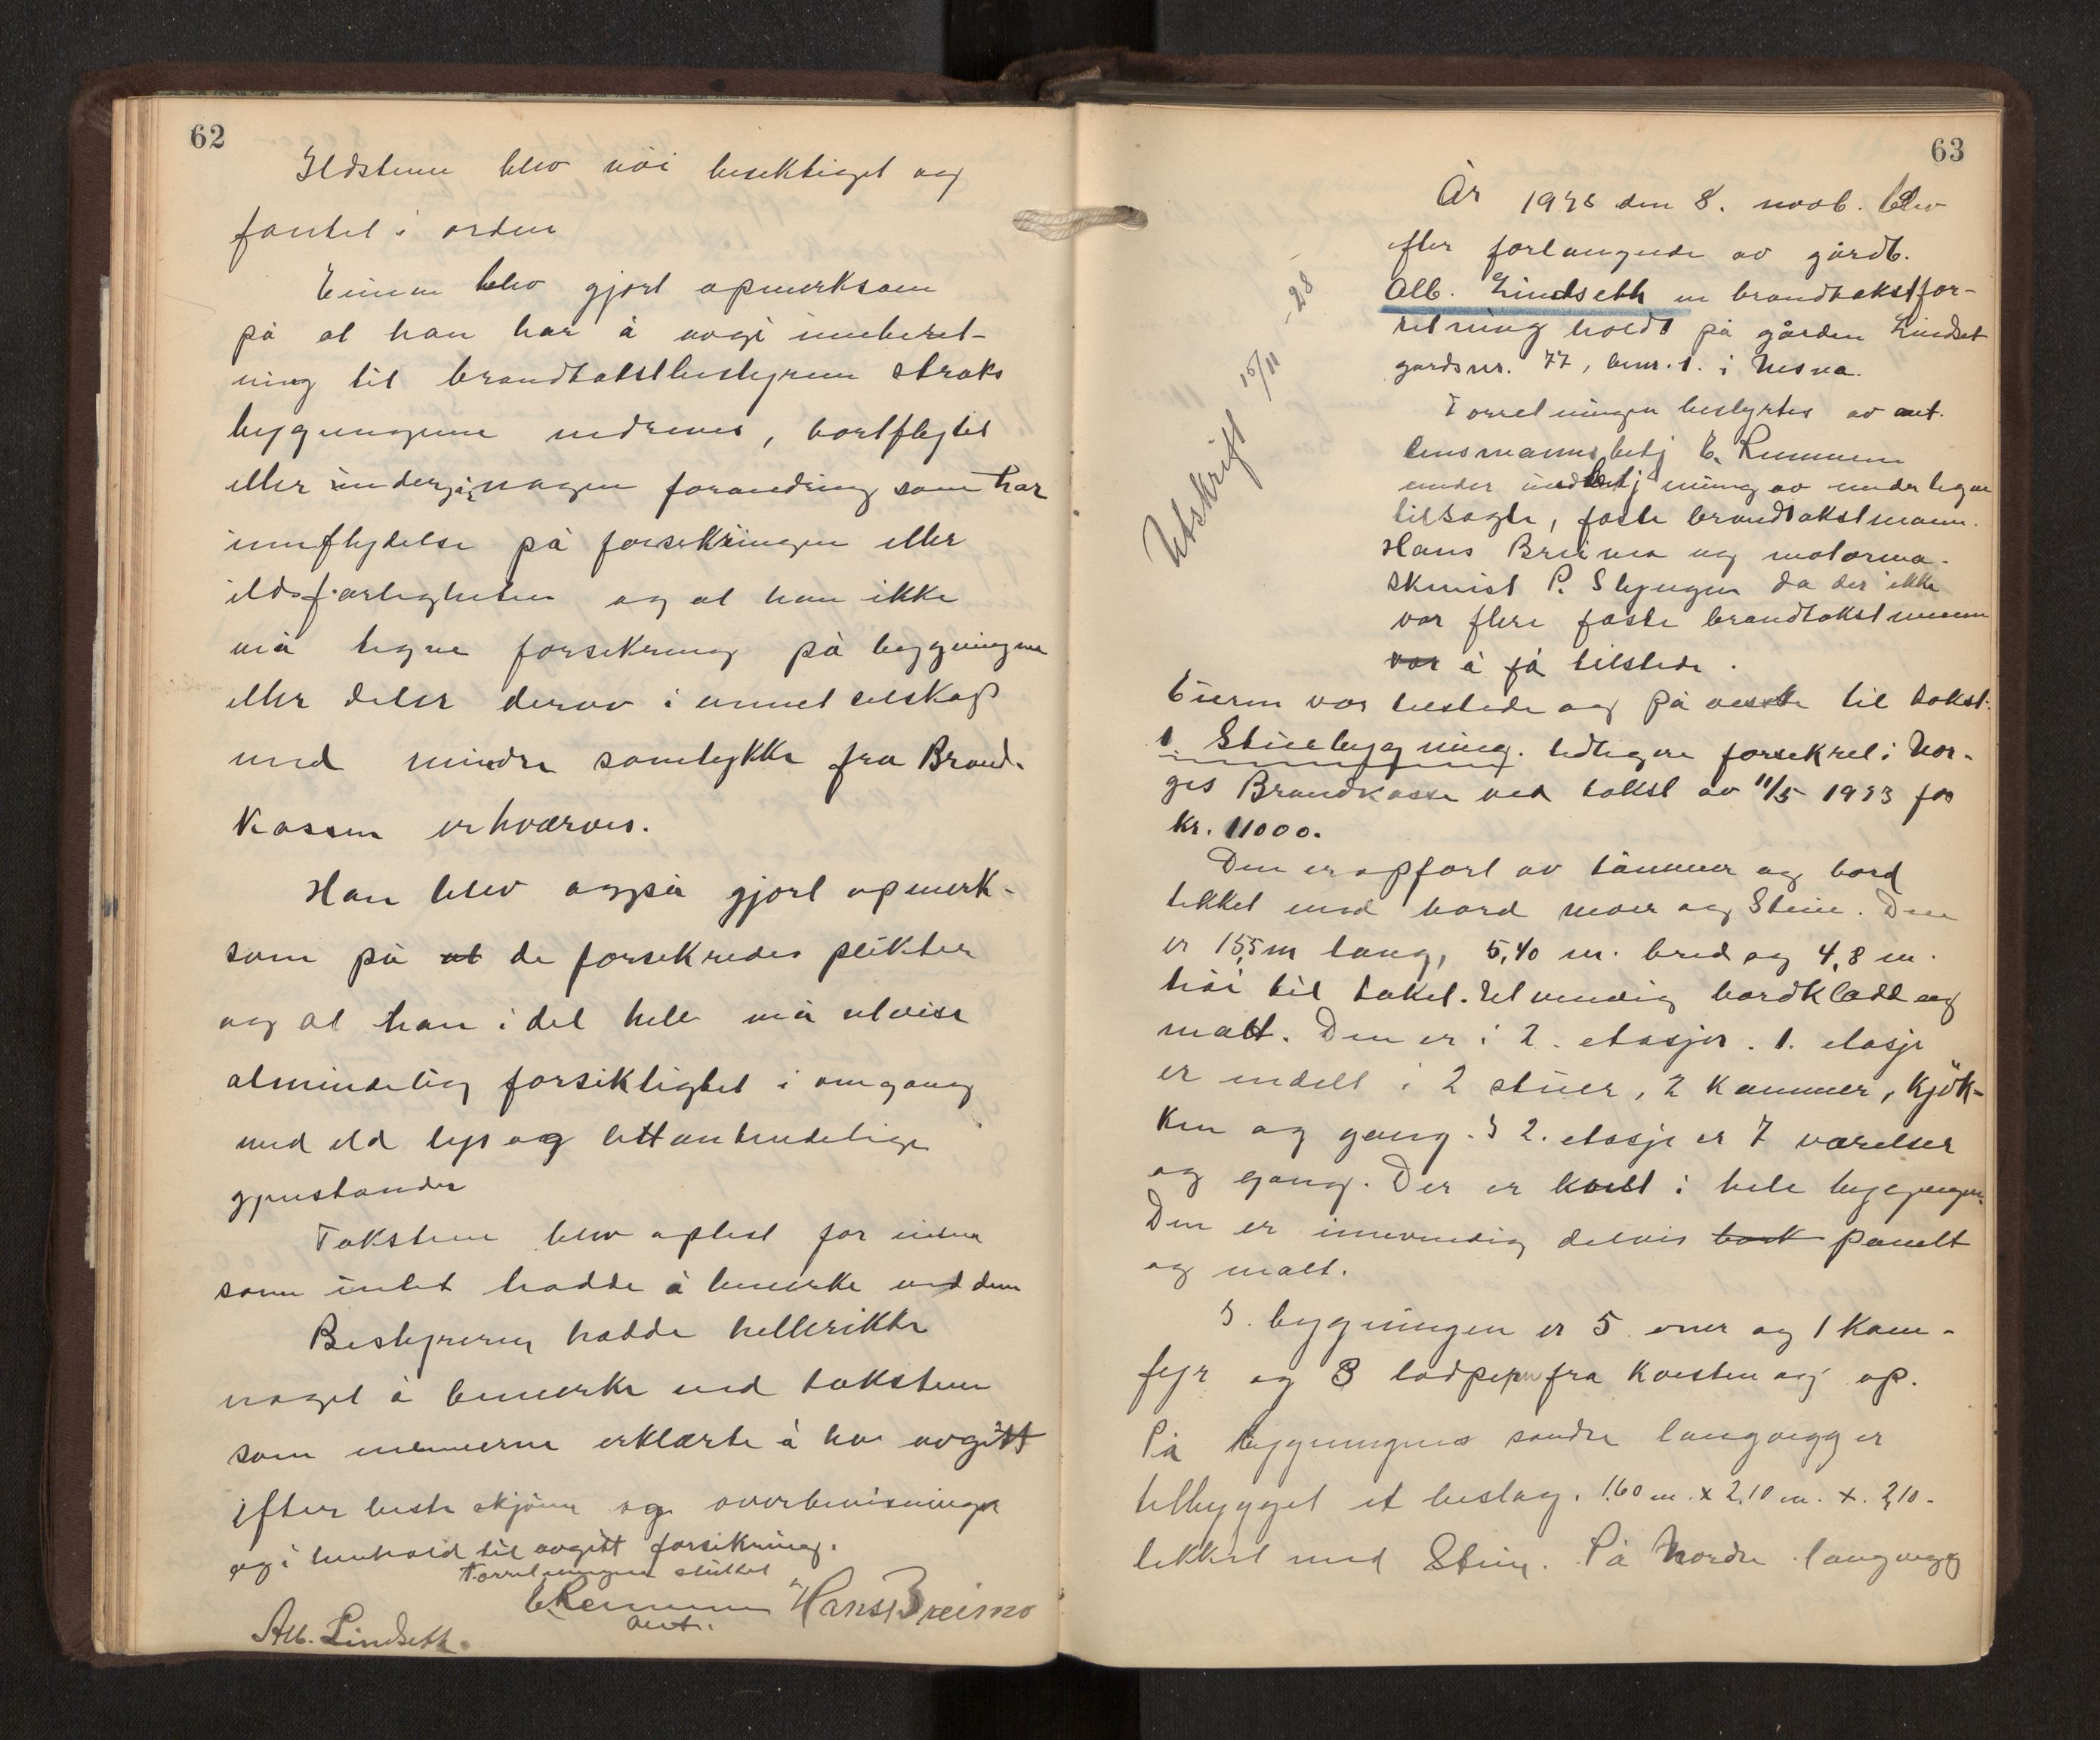 62
Ildstene blev nöi besektiget og
fantet i orden
Eieren blev gjort opmerksom
på at han har å avgi inneberet-
ning til brandtakstbestyreren straks
bygningene nedrives, bortflyttet
eller undergår nogen forandring som har
innflydelse på forsekringen eller
ildsfarligheten og at han ikke
må tegne forsekring på bygningene
eller deler derav i annet selskap
med mindre samtykke fra Brand-
Kassen erhverves.
Han blev også gjort opmerk-
som på at de forsekredes plikter
og at han i det hele må utvise
almindelig forsiktighet i omgang
med ild lys og lettantendelige
gjenstander
Taksten blev oplest for eieren
som intet hadde å bemerke ved den
Bestyreren hadde heller ikke
noget å bemerke ved taksten
som mennerne erklærte å ha avgitt
efter beste skjönn og overbevisninger
og i henhold til avgitt forsikring.
Forretningen sluttet
Hans Breimo
aut.
Alb. Lindseth.
63
År 1928 den 8. novb. blev
efter forlangende av gårdb.
Alb. Lindseth en brandtakstfor-
retning holdt på gården Lindset
gårdsnr. 77, bnr. 1. i Nesna.
Forretningen bestyrtes av aut.
lensmannsbetj E.
under av undertegnede
tilsagte, faste brandtakstmann.
Hans Breimo og motorma-
skinist P. Slyngen da der ikke
var flere faste brandtakstmenn
var å få tilstede.
Eieren var tilstede og på veste til takst:
1. Stuebygning. tidligere forsekret i Nor-
ges Brandkasse ved takst av 11/5 1923 for
kr. 11000.
Den er opfört av tömmer og bord
tekket med bord never og Stein. Den
er 15,5 m lang, 5,40 m. bred og 4,8 m.
höi til taket. Utvendig bordkledt og
malt. Den er i 2. etasjer. 1. etasje
er indelt i 2 stuer, 2 Kammer, Kjök-
ken og gang. I 2. etasje er 7 værelser
og gang. Der er kvist i hele bygningen.
Den er innvendig delvis panelt
og malt.
I. bygningen er 5 ovner og 1 Kom-
fyr og 3 lodpiper fra Kvisten og op.
På bygningens söndre langvegg er
tilbygget et bislag. 1.60 m. x 2,10 m. x. 2,10.
tekket med Stein. På Nordre langvegg
Utskrift 15/11 -28-